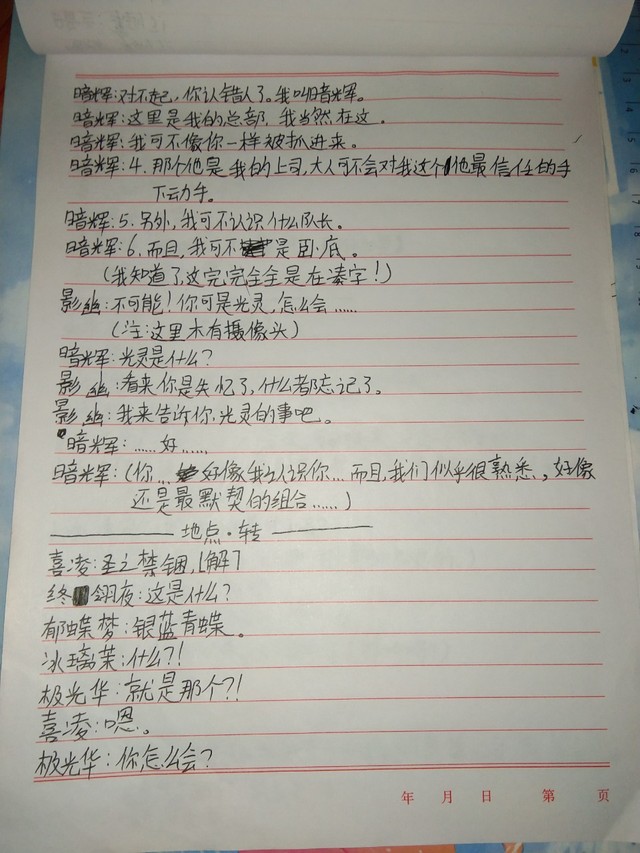 暗辉:对不起，你认错人了。我叫暗光辉。
暗辉:这里是我的总部，我当然在这。
暗辉:我可不像你一样被抓进来。
暗辉:4.那个他是我的上司,大人可不会对我这个他最信任的手
下动手。
暗辉:5.另外,我可不认识什么队长。
暗辉:6.而且,我可不是卧底。
(我知道了这完完全全是在凑字!)
影幽:不可能!你可是光灵,怎么会……
(注:这里木有摄像头)
暗光辉:光灵是什么?
影幽:看来你是失忆了,什么都忘记了。
影幽:我来告诉你光灵的事吧。
暗光辉:……好……
暗光辉:(你…好像我认识你…而且,我们似乎很熟悉,好像
还是最默契的组合……)
地点·转
喜凌:圣之禁锢,[解]
终翎夜:这是什么?
郁蝶梦:银蓝青蝶。
冰璃茉:什么?!
极光华:就是那个?!
喜凌:嗯。
极光华:你怎么会?
年 月 日 第 页